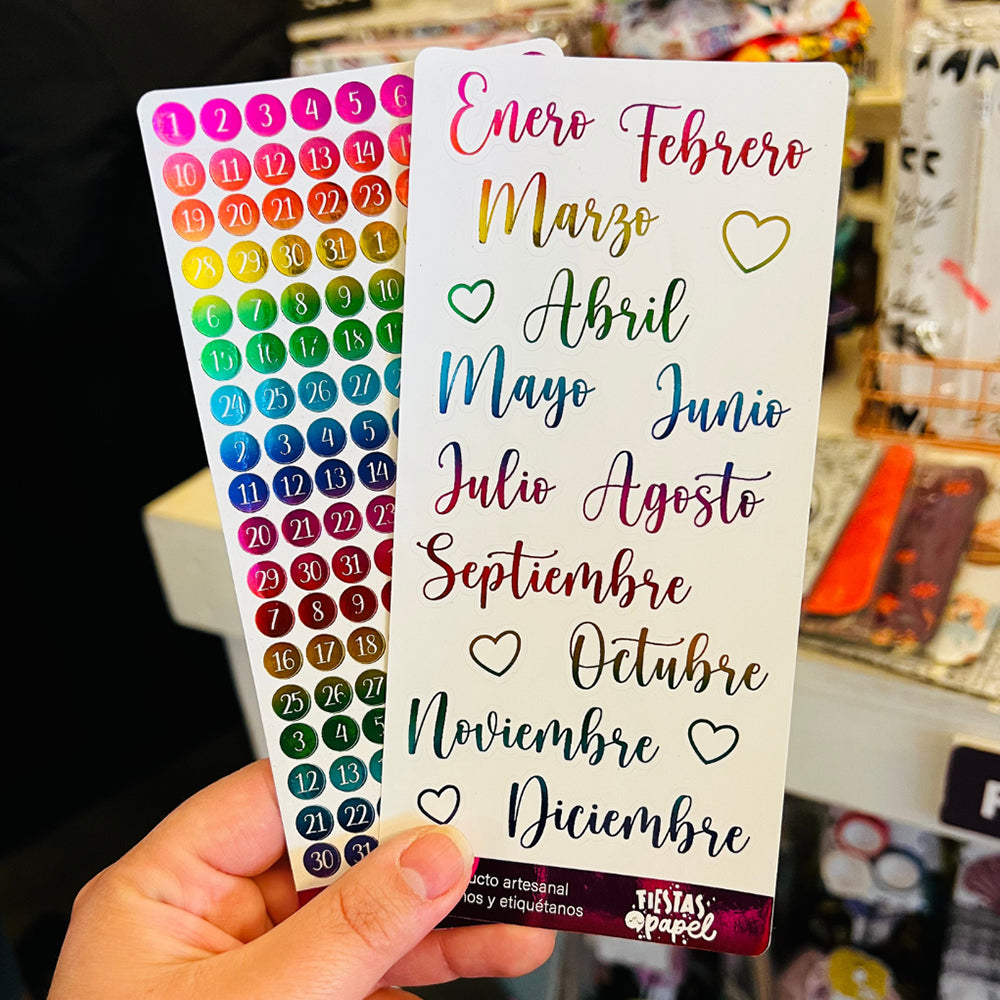 1 2 3 4 5 6
10 11 12 13 14
19 20 21 22 23
28 29 30 31 1
6 7 8 9 10
15 16 17 18
24 25 26 27
2 3 4 5
11 12 13 14
20 21 22 23
29 30 31
7 8 9
16 17 18
25 26 27
3 4 5
12 13
21 22
30 31
Enero Febrero
Marzo
Abril
Mayo Junio
Julio Agosto
Septiembre
Octubre
Noviembre
Diciembre
ucto artesanal
nos y etiquétanos
FIESTAS
papel